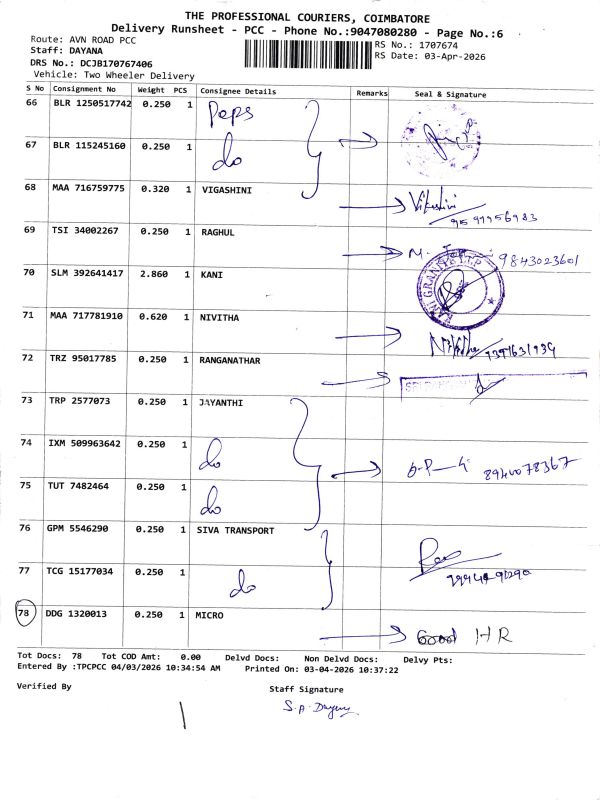 THE PROFESSIONAL COURIERS, COIMBATORE
Delivery Runsheet - PCC - Phone No.:9047080280 - Page No.:6
Route: AVN ROAD PCC
RS No.: 1707674
Staff: DAYANA
RS Date: 03-Apr-2026
DRS No.: DCJB170767406
Vehicle: Two Wheeler Delivery
S No Consignment No Weight PCS Consignee Details Remarks Seal & Signature
66 BLR 1250517742 0.250 1 Peps
67 BLR 115245160 0.250 1 do
68 MAA 716759775 0.320 1 VIGASHINI Vikashini
69 TSI 34002267 0.250 1 RAGHUL M. 9843023601
70 SLM 392641417 2.860 1 KANI
71 MAA 717781910 0.620 1 NIVITHA
72 TRZ 95017785 0.250 1 RANGANATHAR
73 TRP 2577073 0.250 1 JAYANTHI
74 IXM 509963642 0.250 1 do 8940078367
75 TUT 7482464 0.250 1 do
76 GPM 5546290 0.250 1 SIVA TRANSPORT
77 TCG 15177034 0.250 1 do
78 DDG 1320013 0.250 1 MICRO Good HR
Tot Docs: 78 Tot COD Amt: 0.00 Delvd Docs: Non Delvd Docs: Delvy Pts:
Entered By :TPCPCC 04/03/2026 10:34:54 AM Printed On: 03-04-2026 10:37:22
Verified By Staff Signature
S.A. Dayana